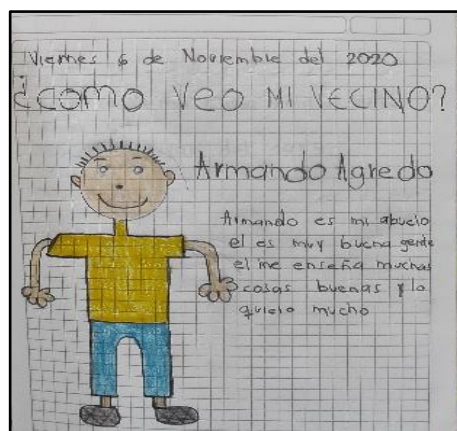 Viernes 6 de Noviembre del 2020
¿COMO VEO MI VECINO?
Armando Agredo
Armando es mi abuelo
el es muy buena gente
el me enseña muchas
cosas buenas y lo
quiero mucho